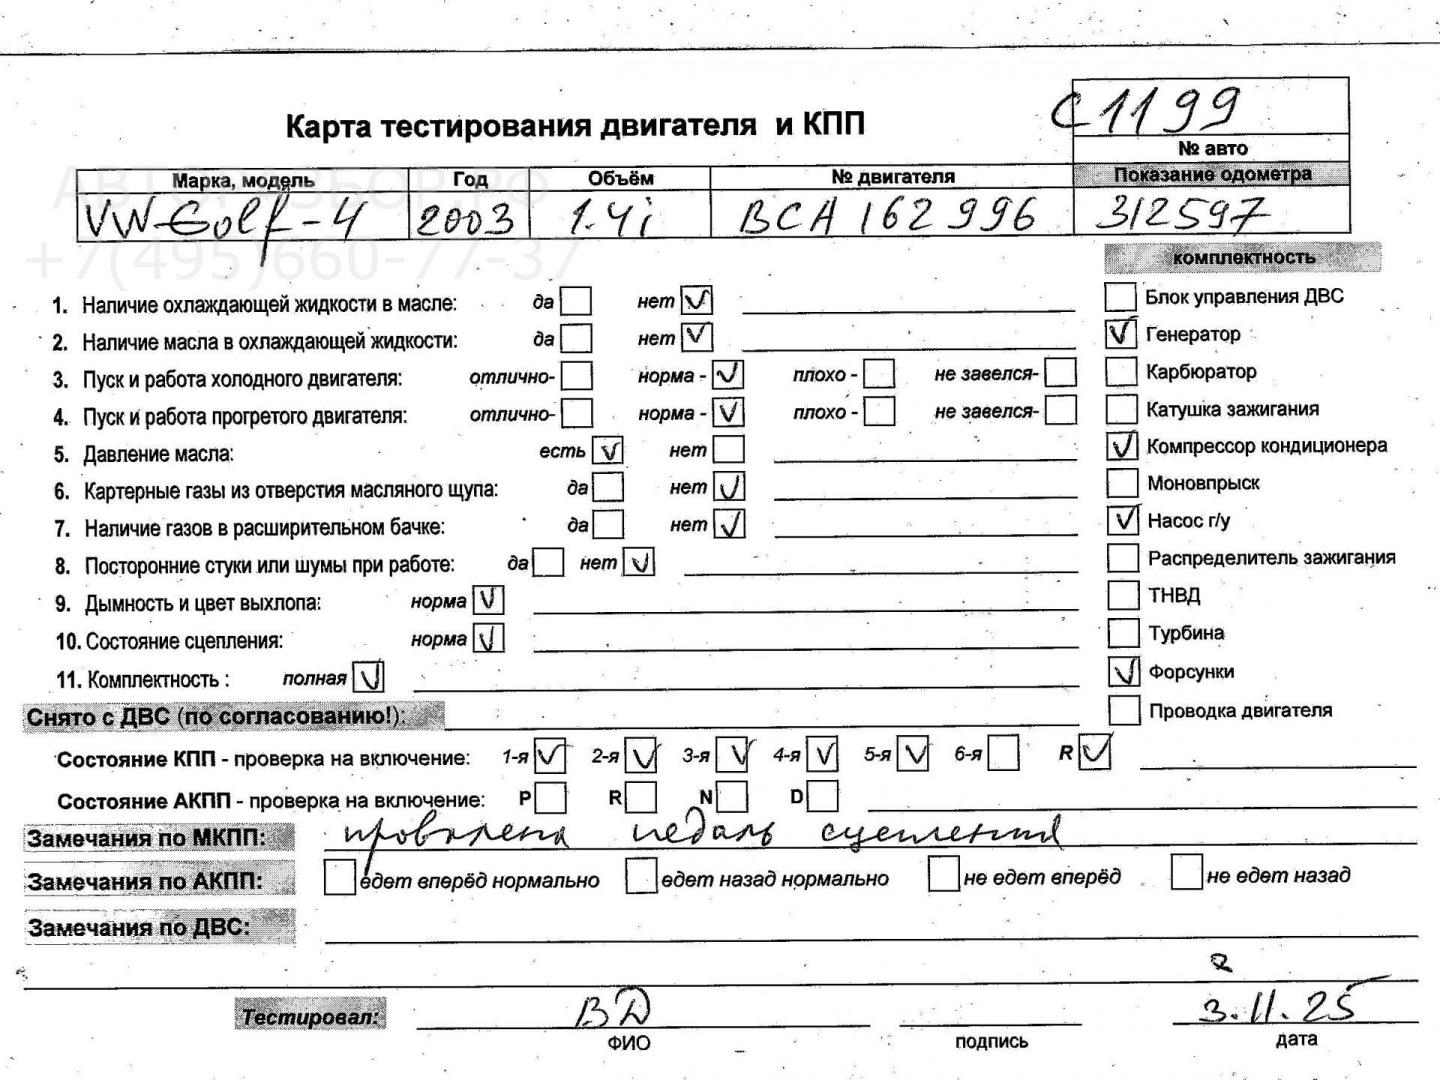 С1199
Карта тестирования двигателя и КПП
№ авто
Марка, модель Год Объём № двигателя Показание одометра
VW Golf-4 2003 1.4i BCA 162996 312597
АВТОРАЗБОР.РФ
+7(495)660-77-37
комплектность
1. Наличие охлаждающей жидкости в масле: да нет ✓
Блок управления ДВС
2. Наличие масла в охлаждающей жидкости: да нет ✓
✓ Генератор
3. Пуск и работа холодного двигателя: отлично- норма - ✓ плохо - не завелся-
Карбюратор
4. Пуск и работа прогретого двигателя: отлично- норма - ✓ плохо - не завелся-
Катушка зажигания
5. Давление масла: есть ✓ нет
✓ Компрессор кондиционера
6. Картерные газы из отверстия масляного щупа: да нет ✓
Моновпрыск
7. Наличие газов в расширительном бачке: да нет ✓
✓ Насос г/у
8. Посторонние стуки или шумы при работе: да нет ✓
Распределитель зажигания
9. Дымность и цвет выхлопа: норма ✓
ТНВД
10. Состояние сцепления: норма ✓
Турбина
11. Комплектность : полная ✓
✓ Форсунки
Снято с ДВС (по согласованию!):
Проводка двигателя
Состояние КПП - проверка на включение: 1-я ✓ 2-я ✓ 3-я ✓ 4-я ✓ 5-я ✓ 6-я R ✓
Состояние АКПП - проверка на включение: P R N D
Замечания по МКПП: провалена педаль сцепления
Замечания по АКПП: едет вперёд нормально едет назад нормально не едет вперёд не едет назад
Замечания по ДВС:
Тестировал: ВД 3.11.25
ФИО подпись дата